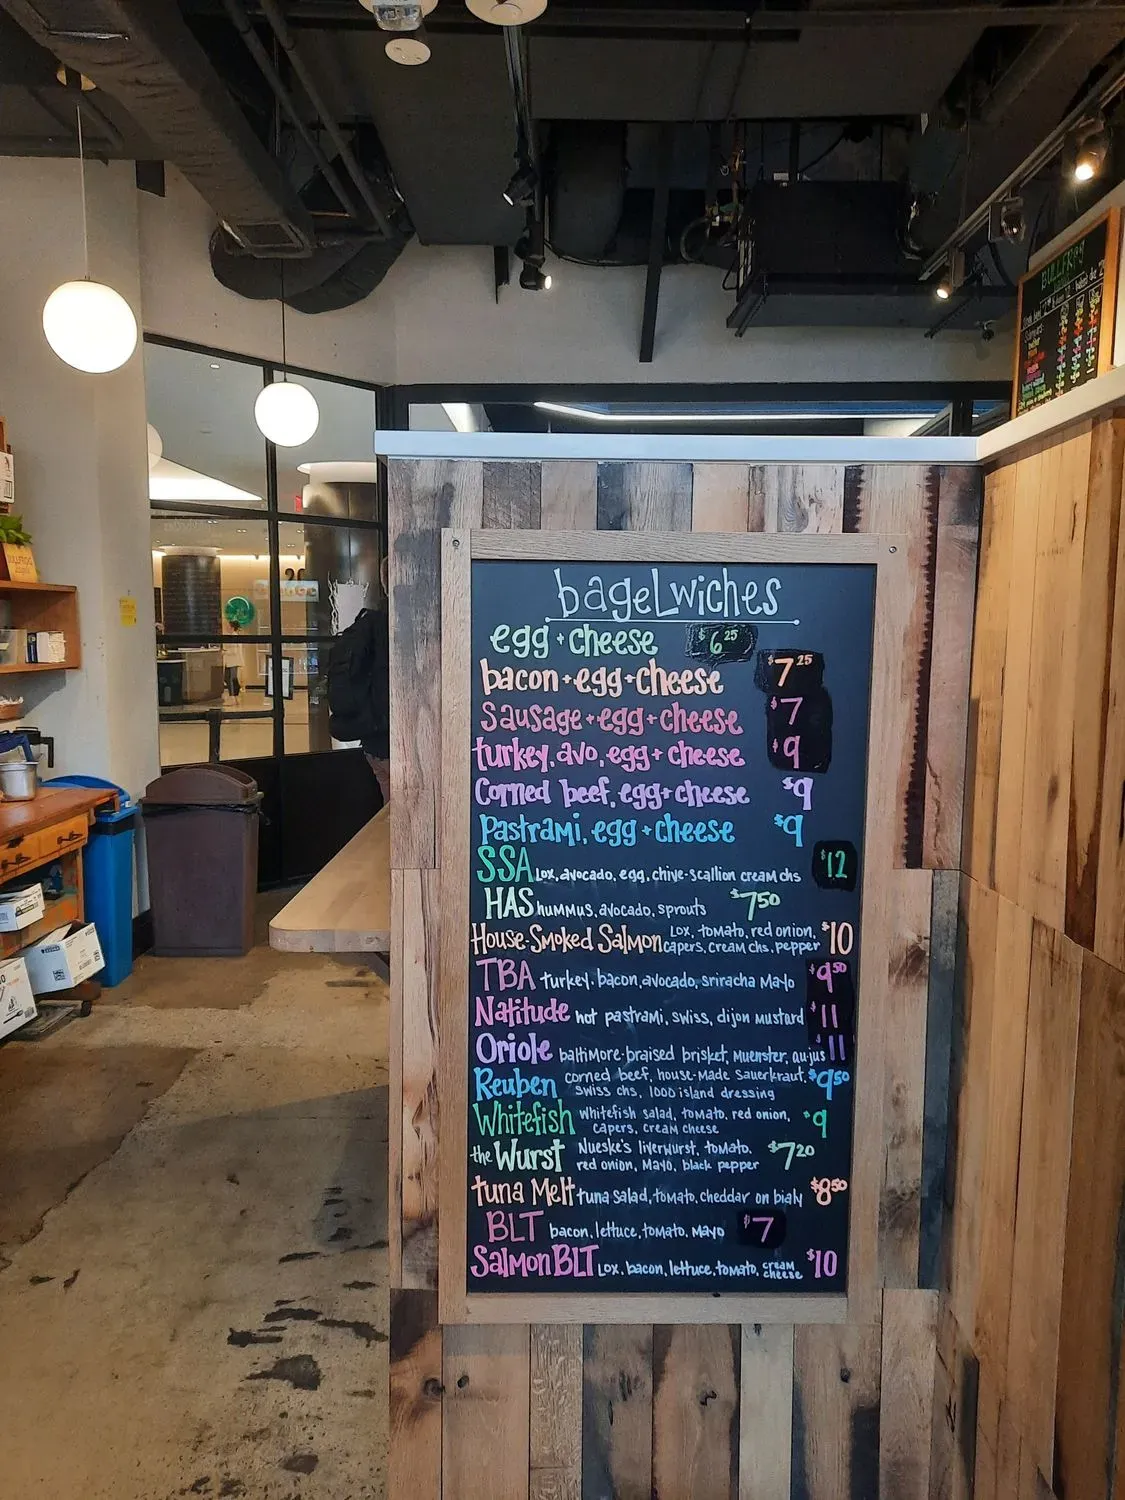 BULLFROG
bageLwiches
egg + cheese $6.25
bacon + egg + cheese $7.25
sausage + egg + cheese $7
turkey, avo, egg + cheese $9
Corned beef, egg + cheese $9
Pastrami, egg + cheese $9
SSA Lox, avocado, egg, chive-scallion cream chs $12
HAS hummus, avocado, sprouts $7.50
House-Smoked Salmon Lox, tomato, red onion, $10
capers, cream chs, pepper
TBA turkey, bacon, avocado, sriracha Mayo $9.50
Natitude hot pastrami, swiss, dijon mustard $11
Oriole baltimore-braised brisket, Muenster, au-jus $11
Reuben corned beef, house-made sauerkraut, $9.50
swiss chs, 1000 island dressing
Whitefish whitefish salad, tomato, red onion, $9
capers, cream cheese
the Wurst Nueske's liverwurst, tomato, $7.20
red onion, Mayo, black pepper
tuna Melt tuna salad, tomato, cheddar on bialy $8.50
BLT bacon, lettuce, tomato, mayo $7
Salmon BLT Lox, bacon, lettuce, tomato, cream cheese $10